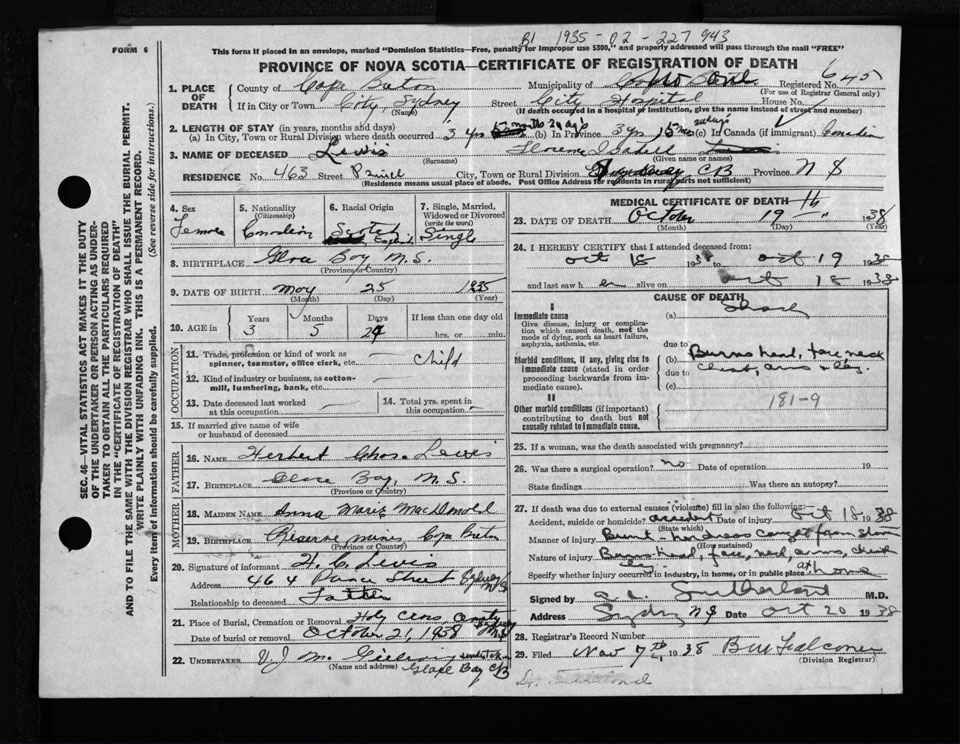 B1 1935-02-227943
FORM 6
This form if placed in an envelope, marked "Dominion Statistics—Free, penalty for improper use $300," and properly addressed will pass through the mail "FREE"
PROVINCE OF NOVA SCOTIA—CERTIFICATE OF REGISTRATION OF DEATH
645
1. PLACE OF DEATH
County of Cape Breton Municipality of Registered No.
(For use of Registrar General only)
If in City or Town City, Sydney Street City Hospital House No.
(Name) (If death occurred in a hospital or institution, give the name instead of street and number)
2. LENGTH OF STAY (in years, months and days)
(a) In City, Town or Rural Division where death occurred 3 yrs 5 mos 24 dys (b) In Province 3 yrs 5 mos 24 days (c) In Canada (if immigrant) Canadian
3. NAME OF DECEASED Lewis Florence Isabell
(Surname) (Given name or names)
RESIDENCE No. 463 Street City, Town or Rural Division CB Province N S
(Residence means usual place of abode. Post Office Address for residents in rural parts not sufficient)
4. Sex
Female
5. Nationality
(Citizenship)
Canadian
6. Racial Origin
Scotch
English
7. Single, Married, Widowed or Divorced
(write the word)
Single
8. BIRTHPLACE Glace Bay N.S.
(Province or Country)
9. DATE OF BIRTH May 25 1935
(Month) (Day) (Year)
10. AGE in Years Months Days If less than one day old
3 5 24 hrs. or min.
OCCUPATION
11. Trade, profession or kind of work as spinner, teamster, office clerk, etc. — child
12. Kind of industry or business, as cotton-mill, lumbering, bank, etc. —
13. Date deceased last worked at this occupation —
14. Total yrs. spent in this occupation —
15. If married give name of wife or husband of deceased
FATHER
16. NAME Herbert Chas. Lewis
17. BIRTHPLACE Glace Bay, N.S.
(Province or Country)
MOTHER
18. MAIDEN NAME Anna Marie MacDonald
19. BIRTHPLACE Reserve mines Cape Breton
(Province or Country)
20. Signature of informant H. C. Lewis
Address 464 Street Sydney N.S
Relationship to deceased Father
21. Place of Burial, Cremation or Removal Holy Cross
Date of burial or removal October 21, 1938
22. UNDERTAKER V J Mc undertaker
(Name and address) Glace Bay CB
MEDICAL CERTIFICATE OF DEATH
23. DATE OF DEATH October 19th 1938
(Month) (Day) (Year)
24. I HEREBY CERTIFY that I attended deceased from:
Oct 18 1938 to Oct 19 1938
and last saw her alive on Oct 18 1938
CAUSE OF DEATH
I
Immediate cause
Give disease, injury or complication which caused death, not the mode of dying, such as heart failure, asphyxia, asthenia, etc.
(a) Shock
due to
Morbid conditions, if any, giving rise to immediate cause (stated in order proceeding backwards from immediate cause).
(b) Burns head, face neck
due to chest, arms & leg.
(c)
II
Other morbid conditions (if important) contributing to death but not causally related to immediate cause.
181-9
25. If a woman, was the death associated with pregnancy?
26. Was there a surgical operation? no Date of operation 19
State findings Was there an autopsy?
27. If death was due to external causes (violence) fill in also the following:
Accident, suicide or homicide? accident Date of injury Oct 18 1938
(State which)
Manner of injury Burnt - caught from stove
(How sustained)
Nature of injury Burns head, face, neck, arms, chest leg.
Specify whether injury occurred in industry, in home, or in public place at home
Signed by Sutherland M.D.
Address Sydney NS Date Oct 20 1938
28. Registrar's Record Number
29. Filed Nov 7th 1938 B W Falconer
(Division Registrar)
SEC. 46—VITAL STATISTICS ACT MAKES IT THE DUTY OF THE UNDERTAKER OR PERSON ACTING AS UNDERTAKER TO OBTAIN ALL THE PARTICULARS REQUIRED IN THE "CERTIFICATE OF REGISTRATION OF DEATH" AND TO FILE THE SAME WITH THE DIVISION REGISTRAR WHO SHALL ISSUE THE BURIAL PERMIT.
WRITE PLAINLY WITH UNFADING INK. THIS IS A PERMANENT RECORD.
Every item of information should be carefully supplied. (See reverse side for instructions.)